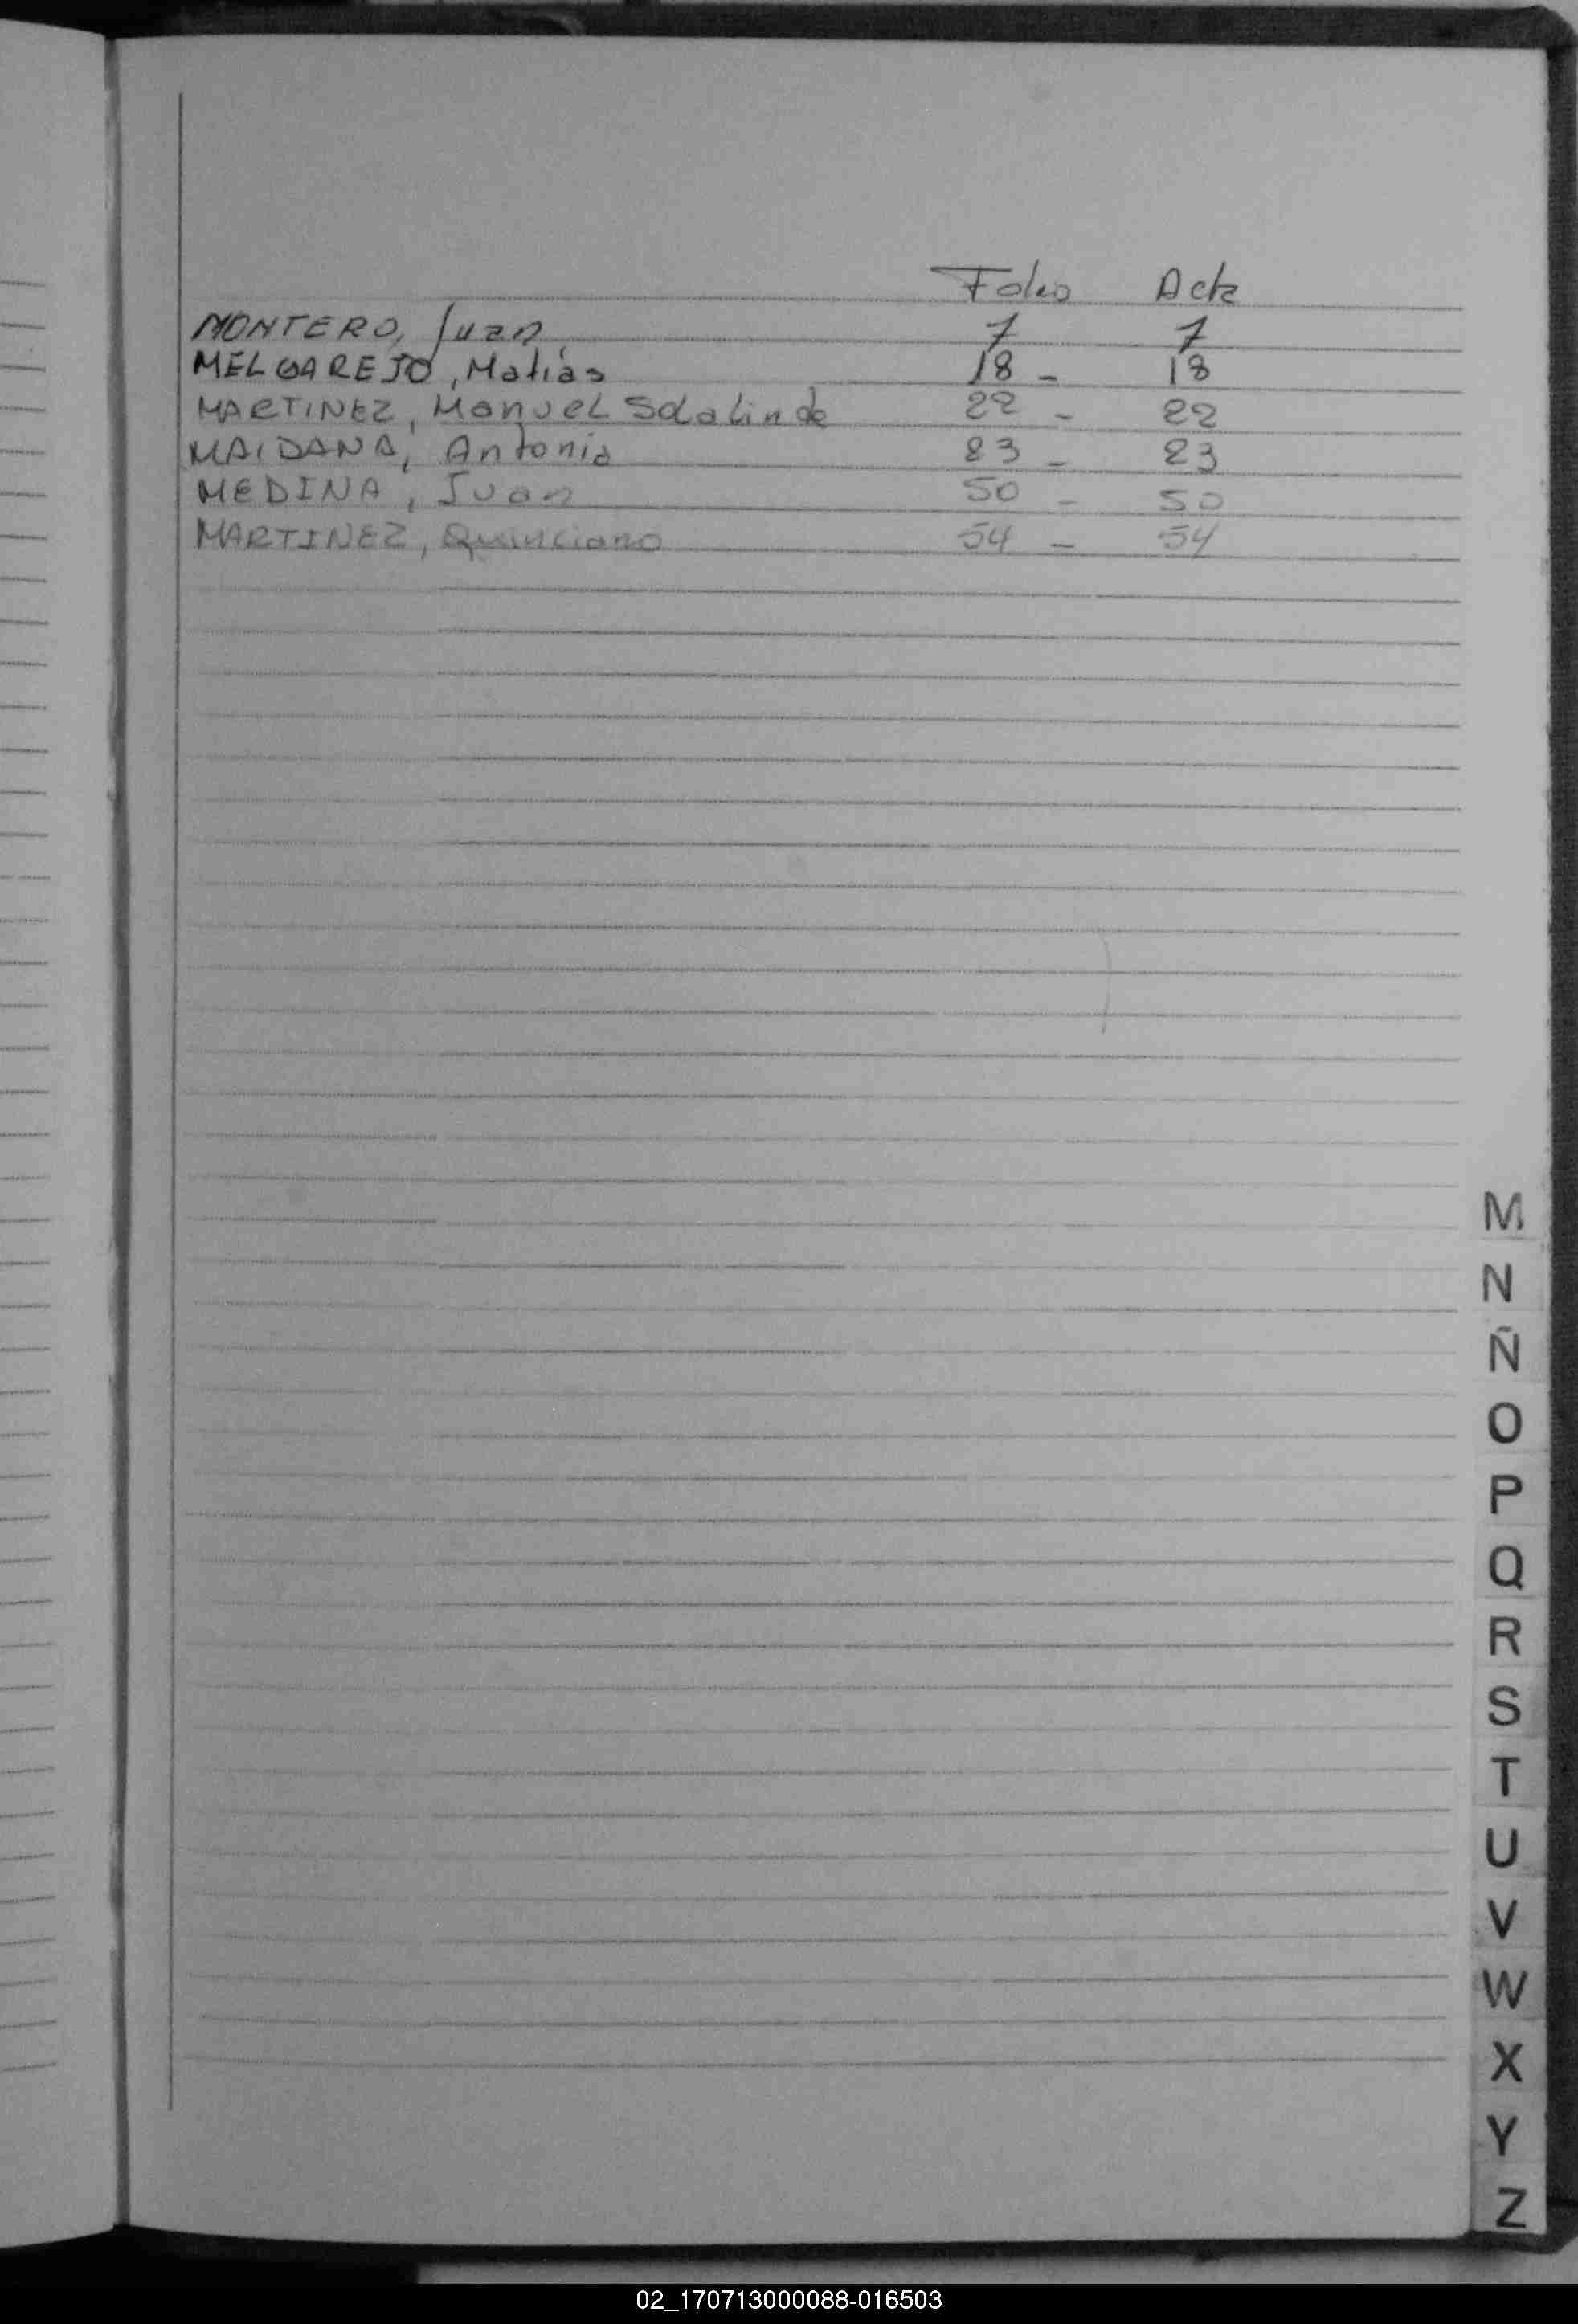 Folio Acta
MONTERO, Juan 7 7
MELGAREJO, Matías 18 - 18
MARTINEZ, Manuel Solalinde 22 - 22
MAIDANA, Antonia 23 - 23
MEDINA, Juan 50 - 50
MARTINEZ, 54 - 54
M
N
Ñ
O
P
Q
R
S
T
U
V
W
X
Y
Z
02_170713000088-016503